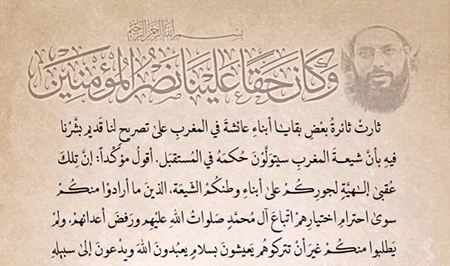 بسم الله الرحمن الرحيم
وَكَانَ حَقًّا عَلَيْنَا نَصْرُ الْمُؤْمِنِينَ
ثارتْ ثائرةُ بعْضِ بقايـا أبناءِ عائشةَ في المغربِ علىٰ تصريحٍ لنا قديمٍ بشَّرْنا
فيهِ بأنَّ شيعـةَ المغربِ سيتولَّوْنَ حُكمَهُ في المُستقبَل. أقولُ مؤكِّداً: إنَّ تلكَ
عُقبىٰ إلـٰهيَّةٌ لجورِكُمْ علىٰ أبناءِ وطنِكُمُ الشّيعَة، الذينَ ما أرادُوا منكُـمْ
سوىٰ احترامِ اختيارِهِمُ اتِّباعَ آلِ مُحمَّدٍ صلواتُ اللهِ عليهِم ورفضَ أعدائهِمْ، ولمْ
يَطلبوا منكُمْ غيرَ أنْ تتركُوهُم يَعيشونَ بسلامٍ يَعبُدونَ اللهَ ويدْعونَ إلىٰ سبيلِهِ